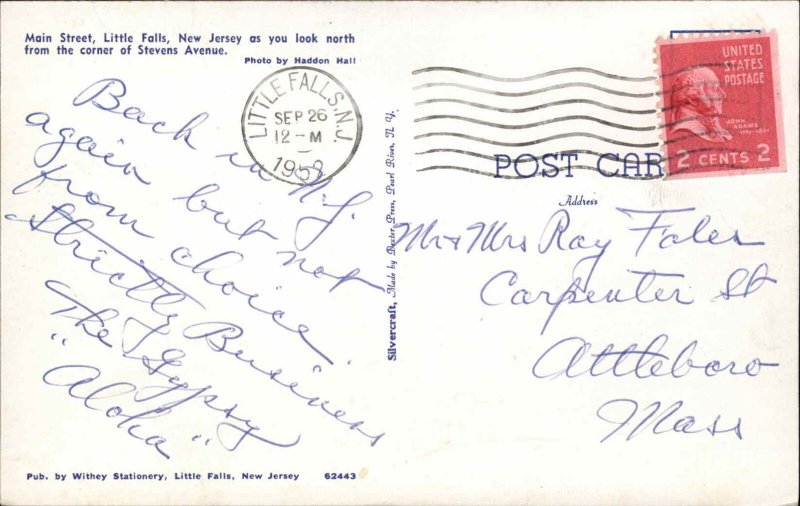 Main Street, Little Falls, New Jersey as you look north
from the corner of Stevens Avenue.
Photo by Haddon Hall
Back in N.J.
again but not
from choice.
Strictly Business
The Gypsy
"Aloha"
Pub. by Withey Stationery, Little Falls, New Jersey 62443
Silvercraft, Made by Dexter Press, Pearl River, N. Y.
LITTLE FALLS, N.J.
SEP 26
12-M
1952
UNITED
STATES
POSTAGE
JOHN
ADAMS
1797-1801
2 CENTS 2
POST CAR
Address
Mr & Mrs Ray Fales
Carpenter St
Attleboro
Mass